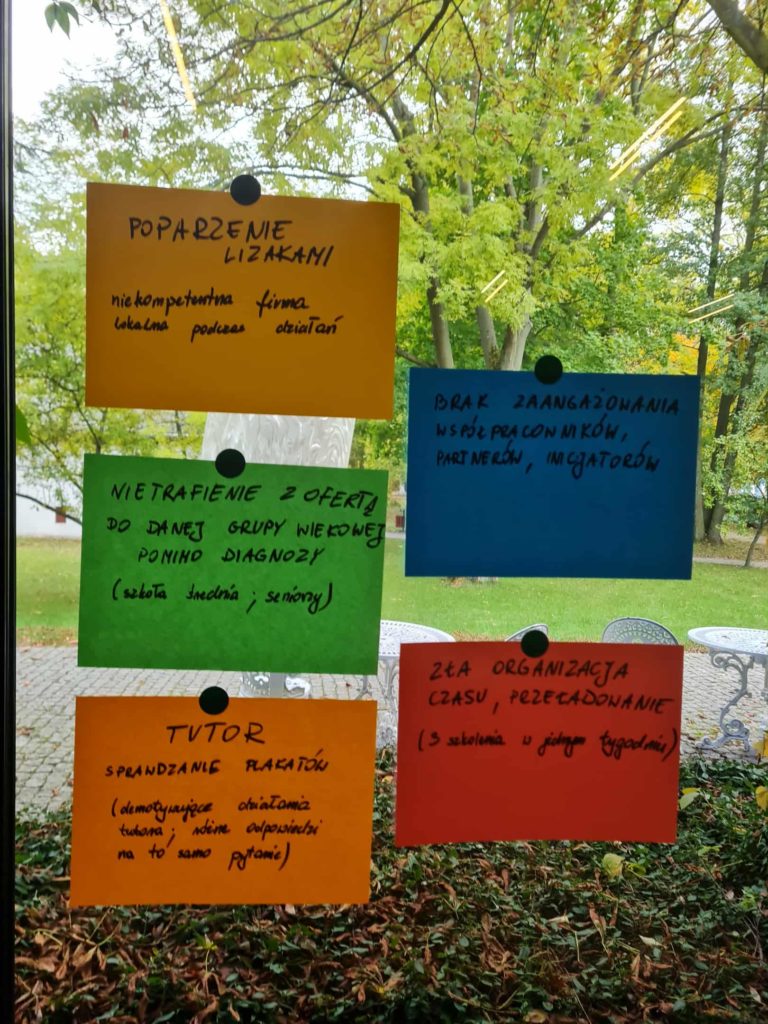 POPARZENIE
LIZAKAMI
niekompetentna firma
lokalna podczas działań
NIETRAFIENIE Z OFERTĄ
DO DANEJ GRUPY WIEKOWEJ
POMIMO DIAGNOZY
(szkoła średnia ; seniorzy)
TUTOR
SPRAWDZANIE PLAKATÓW
(demotywujące działania
tutora ; różne odpowiedzi
na to samo pytanie)
BRAK ZAANGAŻOWANIA
WSPÓŁPRACOWNIKÓW,
PARTNERÓW, INICJATORÓW
ZŁA ORGANIZACJA
CZASU, PRZEŁADOWANIE
(3 szkolenia w jednym tygodniu)